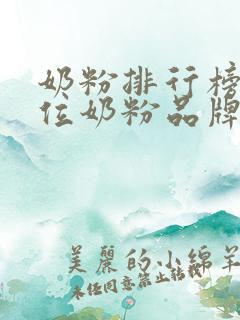 奶粉排行榜
位奶粉品牌
美丽的小绵羊
未经同意禁止转载